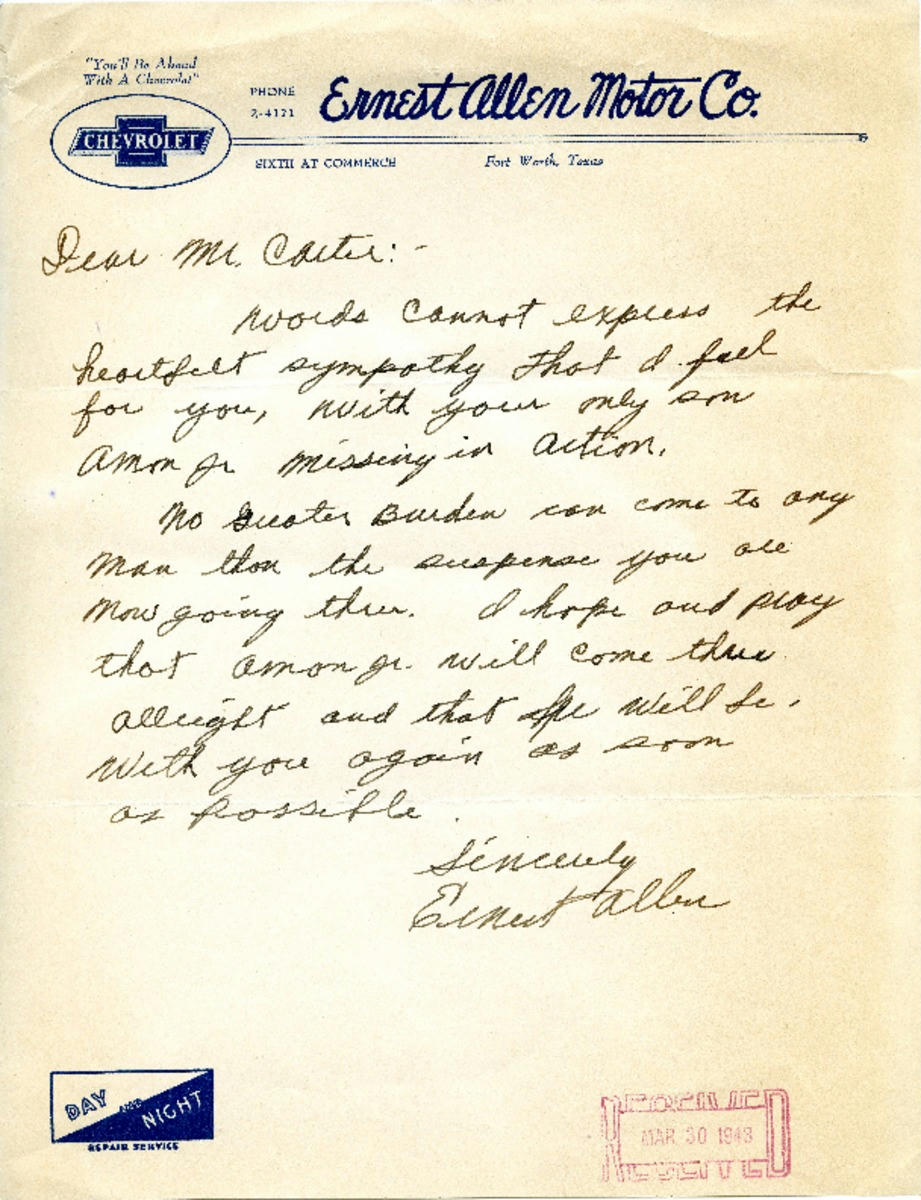 "You'll Be Ahead
With A Chevrolet"
CHEVROLET
PHONE
2-4121
Ernest Allen Motor Co.
SIXTH AT COMMERCE
Fort Worth, Texas
Dear Mr. Carter:-
Words cannot express the
heartfelt sympathy that I feel
for you, with your only son
Amon Jr missing in action.
No greater Burden can come to any
man than the suspense you are
now going thru. I hope and pray
that Amon Jr. will come thru
allright and that he will be
with you again as soon
as possible.
Sincerely
Ernest Allen
DAY AND NIGHT
REPAIR SERVICE
RECEIVED
MAR 30 1943
RECEIVED